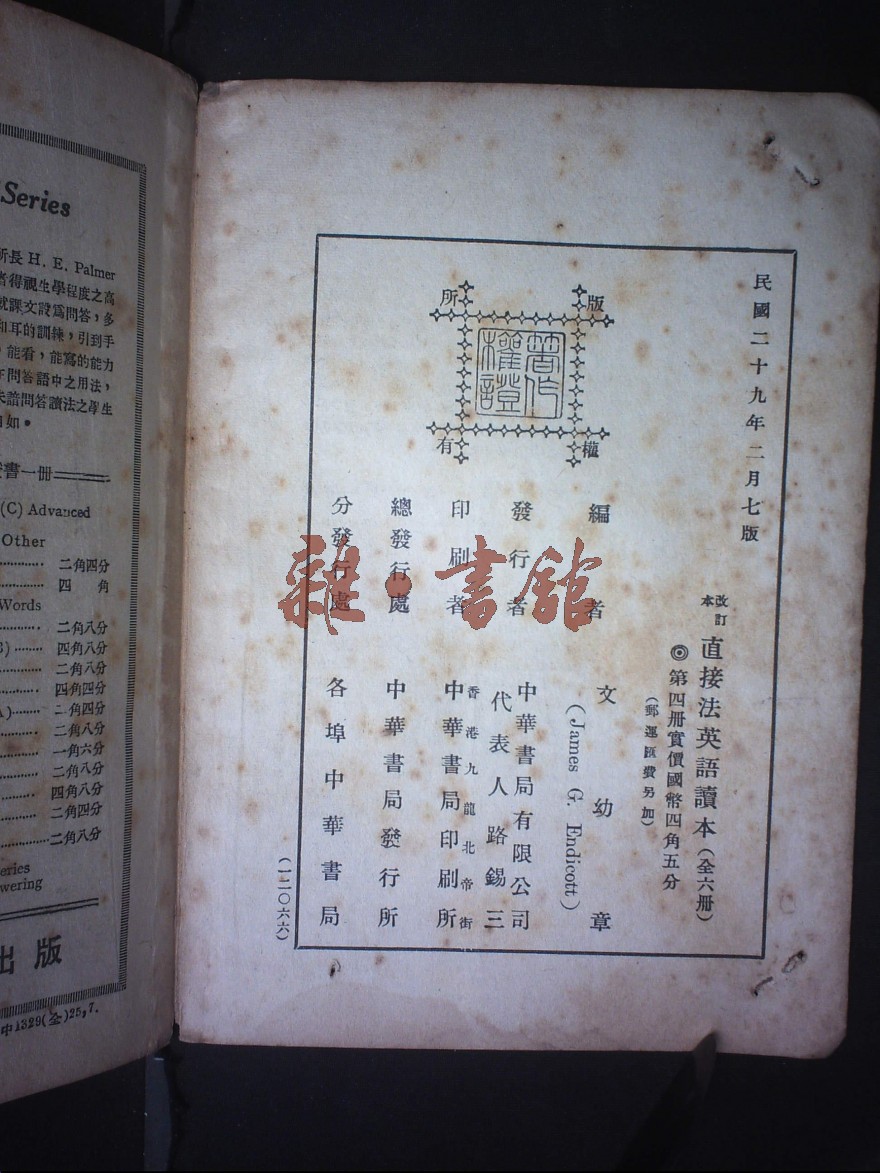 Series
所長 H. E. Palmer
者得視生學程度之高
就課文設爲問答，多
和耳的訓練，引到手
，能看，能寫的能力
問答語中之用法，
未諳問答讀法之學生
自如。
書一冊
(C) Advanced
Other
二角四分
四角
Words
二角八分
四角八分
二角八分
四角四分
二角四分
二角八分
一角六分
二角八分
四角八分
二角四分
二角八分
eries
wering
出版
中1329(全)25,7.
民國二十九年二月七版
改訂本 直接法英語讀本（全六冊）
◎第四冊實價國幣四角五分
（郵運匯費另加）
版權所有
著作權證
編者 文幼章
(James G. Endicott)
發行者 中華書局有限公司
代表人 路錫三
印刷者 香港九龍北帝街
中華書局印刷所
總發行處 中華書局發行所
分發行處 各埠中華書局
（一二〇六六）
雜·書館